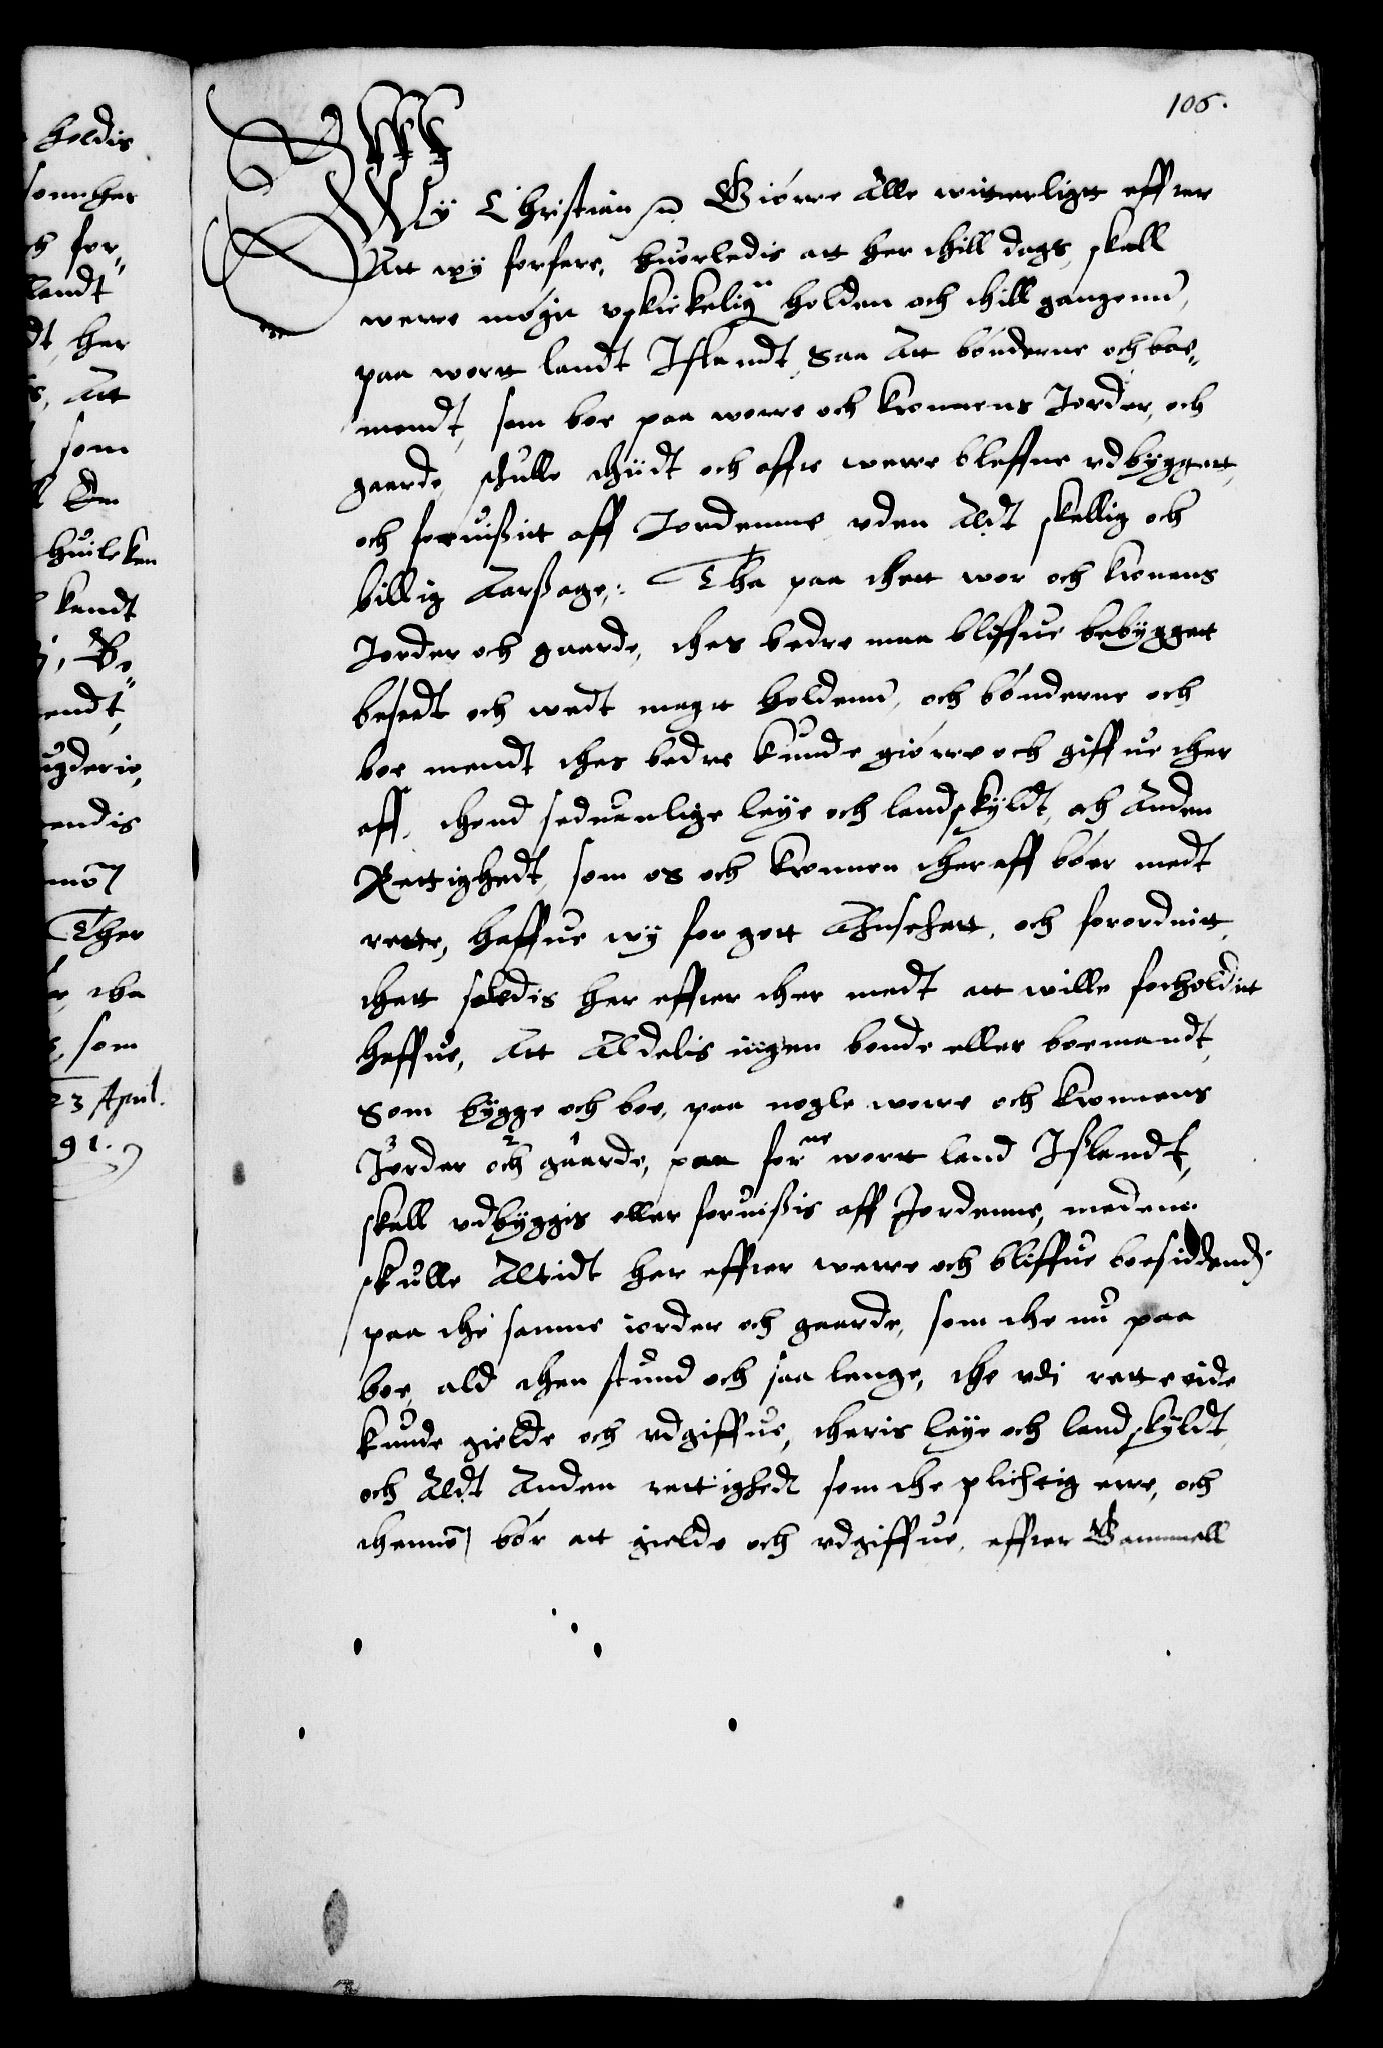 holdis
som her
och for-
landt
dt, her
s, Att
som
l En
huileken
kandt
Bo-
endt,
ugderie,
endis
Ther
tha
som
23 April.
91.
106.
Wÿ Christian Giörre Alle witterligtt effter
Att wÿ forfare, huorledis att her thill dags, skall
werre mögit vskickelig holden och thill gangenn,
paa wortt landt Islandt, Saa Att bönderne och boe-
mendt, som boe paa worre och Kronnens Jorder, och
gaarde, schulle thiidt och offte werre bleffne vdbÿggett,
och foruißitt aff Jordenne, vden Aldt skellig och
billig Aarßage,: Tha paa thett wor och Kronens
Jorder och gaarde, thes bedre maa bliffue bebÿggett
besedt och wedt magtt holdenn, och bönderne och
boe mendt thes bedre kunde giörre och giffue ther
aff, thend seduanlige leÿe och landskÿldt, och Anden
Rettighedt, som os och Kronnen ther aff böer medt
rette, haffue wÿ for gott Ahnsehett, och forordnitt,
thett saledis her effter ther medt att wille forholditt
haffue, Att Aldelis ingen bonde eller boemandt,
Som bÿgge och boe, paa nogle worre och Kronnens
Jorder och gaarde, paa forne wortt land Islandt,
skall vdbÿggis eller foruißis aff Jordenne, medenn
skulle Altidt her effter werre och bliffue boesiddendj
paa the samme iorder och gaarde, som the nu paa
boe, ald then stund och saa lenge, the vdi rette tide
kunde gielde och vdgiffue, theris leÿe och landskÿldt
och Aldt Anden rettighedt som the plichtig erre, och
thennom bör att gielde och vdgiffue, effter Gammell